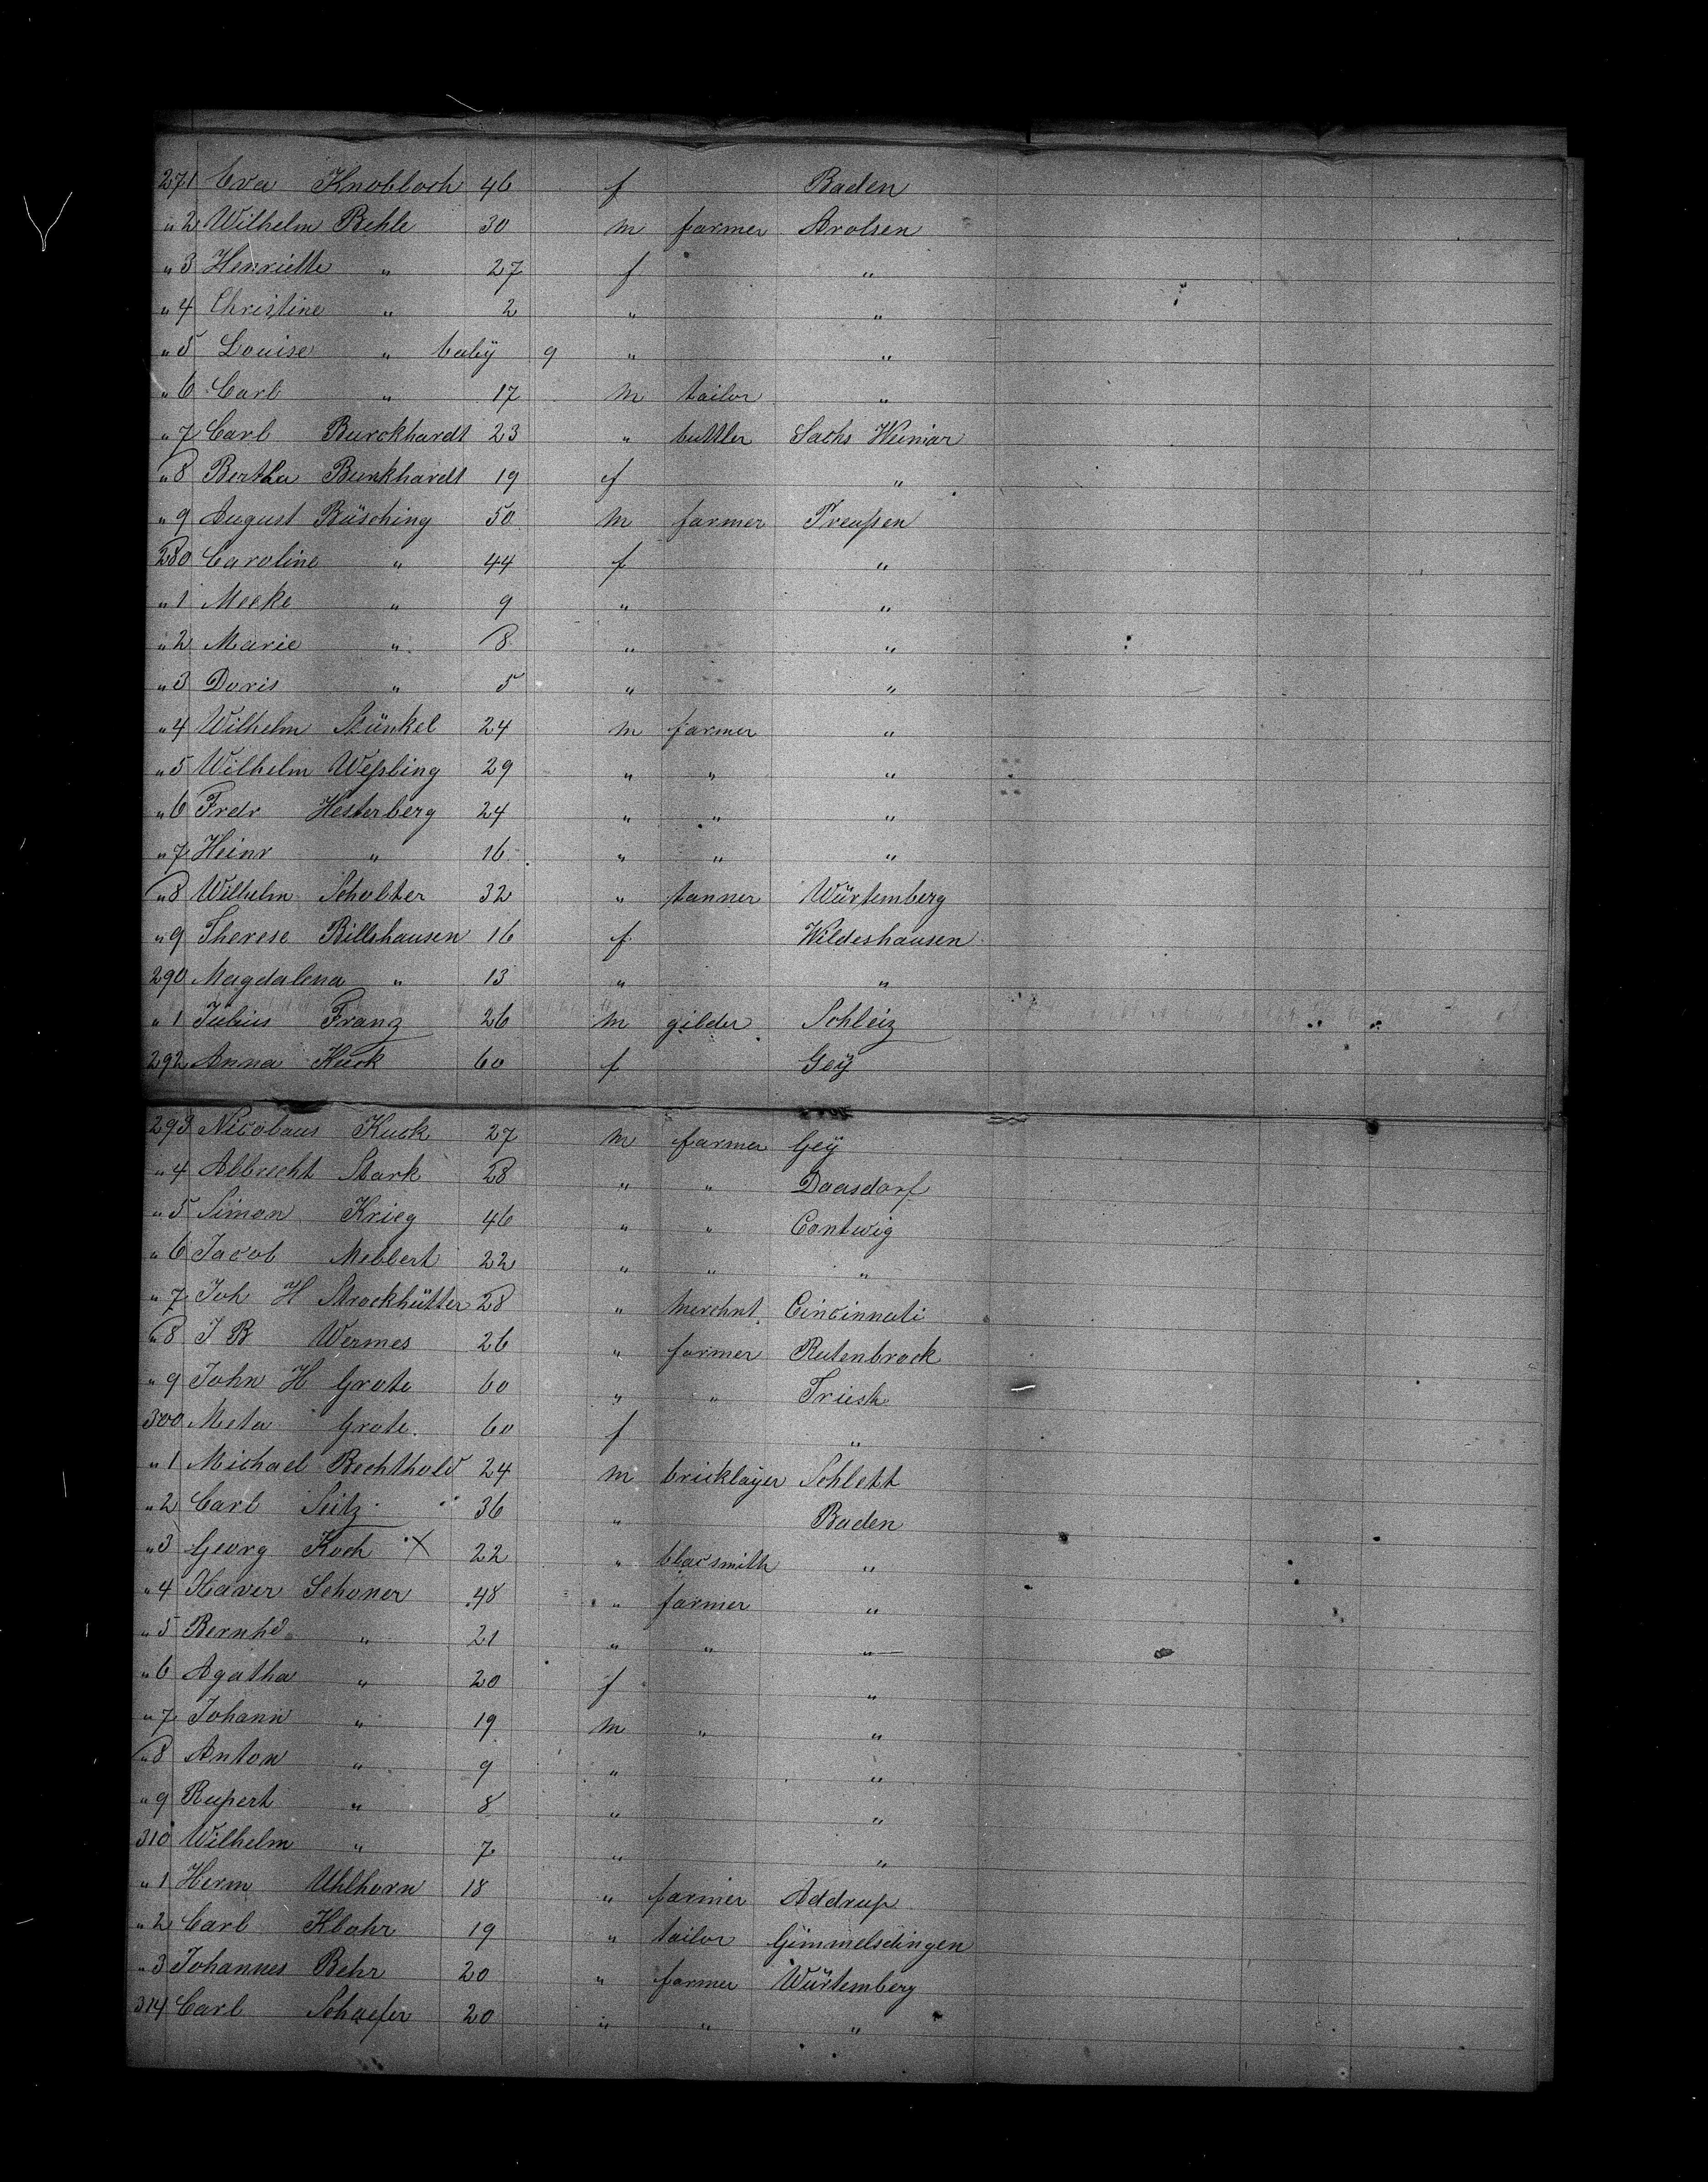 271 Eva Knobloch 46 f Baden
"2 Wilhelm Behle 30 m farmer Arolsen
"3 Henriette " 27 f "
"4 Christine " 2 " "
"5 Louise " baby 9 " "
"6 Carl " 17 m tailor "
"7 Carl Burckhardt 23 " buttler Sachs Weimar
"8 Bertha Burkhardt 19 f "
"9 August Büsching 50 m farmer Preußen
280 Caroline " 44 f "
"1 Meeke " 9 " "
"2 Marie " 8 " "
"3 Doris " 5 " "
"4 Wilhelm Stünkel 24 m farmer "
"5 Wilhelm Weßling 29 " " "
"6 Fredr Hesterberg 24 " " "
"7 Heinr " 16 " " "
"8 Wilhelm Scholter 32 " tanner Würtemberg
"9 Therese Billshausen 16 f Wildeshausen
290 Magdalena " 13 " "
"1 Julius Franz 26 m gilder Schleiz
292 Anna Kuck 60 f Geÿ
293 Nicolaus Kuck 27 m farmer Geÿ
"4 Albrecht Stark 28 " " Daasdorf
"5 Simon Krieg 46 " " Contwig
"6 Jacob Mebbert 22 " " "
"7 Joh H Strockhütter 28 " merchnt Cincinnati
"8 J B Wermes 26 " farmer Rutenbrock
"9 John H Grote 60 " "
300 Meta Grote 60 f "
"1 Michael Bechthold 24 m bricklayer Schlett
"2 Carl Seitz 36 " Baden
"3 Georg Koch X 22 " blacsmith "
"4 Xaver Schoner 48 " farmer "
"5 Bernhd " 21 " " "
"6 Agatha " 20 f "
"7 Johann " 19 m " "
"8 Anton " 9 " "
"9 Rupert " 8 " "
310 Wilhelm " 7 " "
"1 Herm Uhlhorn 18 " farmer Addrup
"2 Carl Klohr 19 " tailor Gimmelsdingen
"3 Johannes Behr 20 " farmer Würtemberg
314 Carl Schaefer 20 " " "